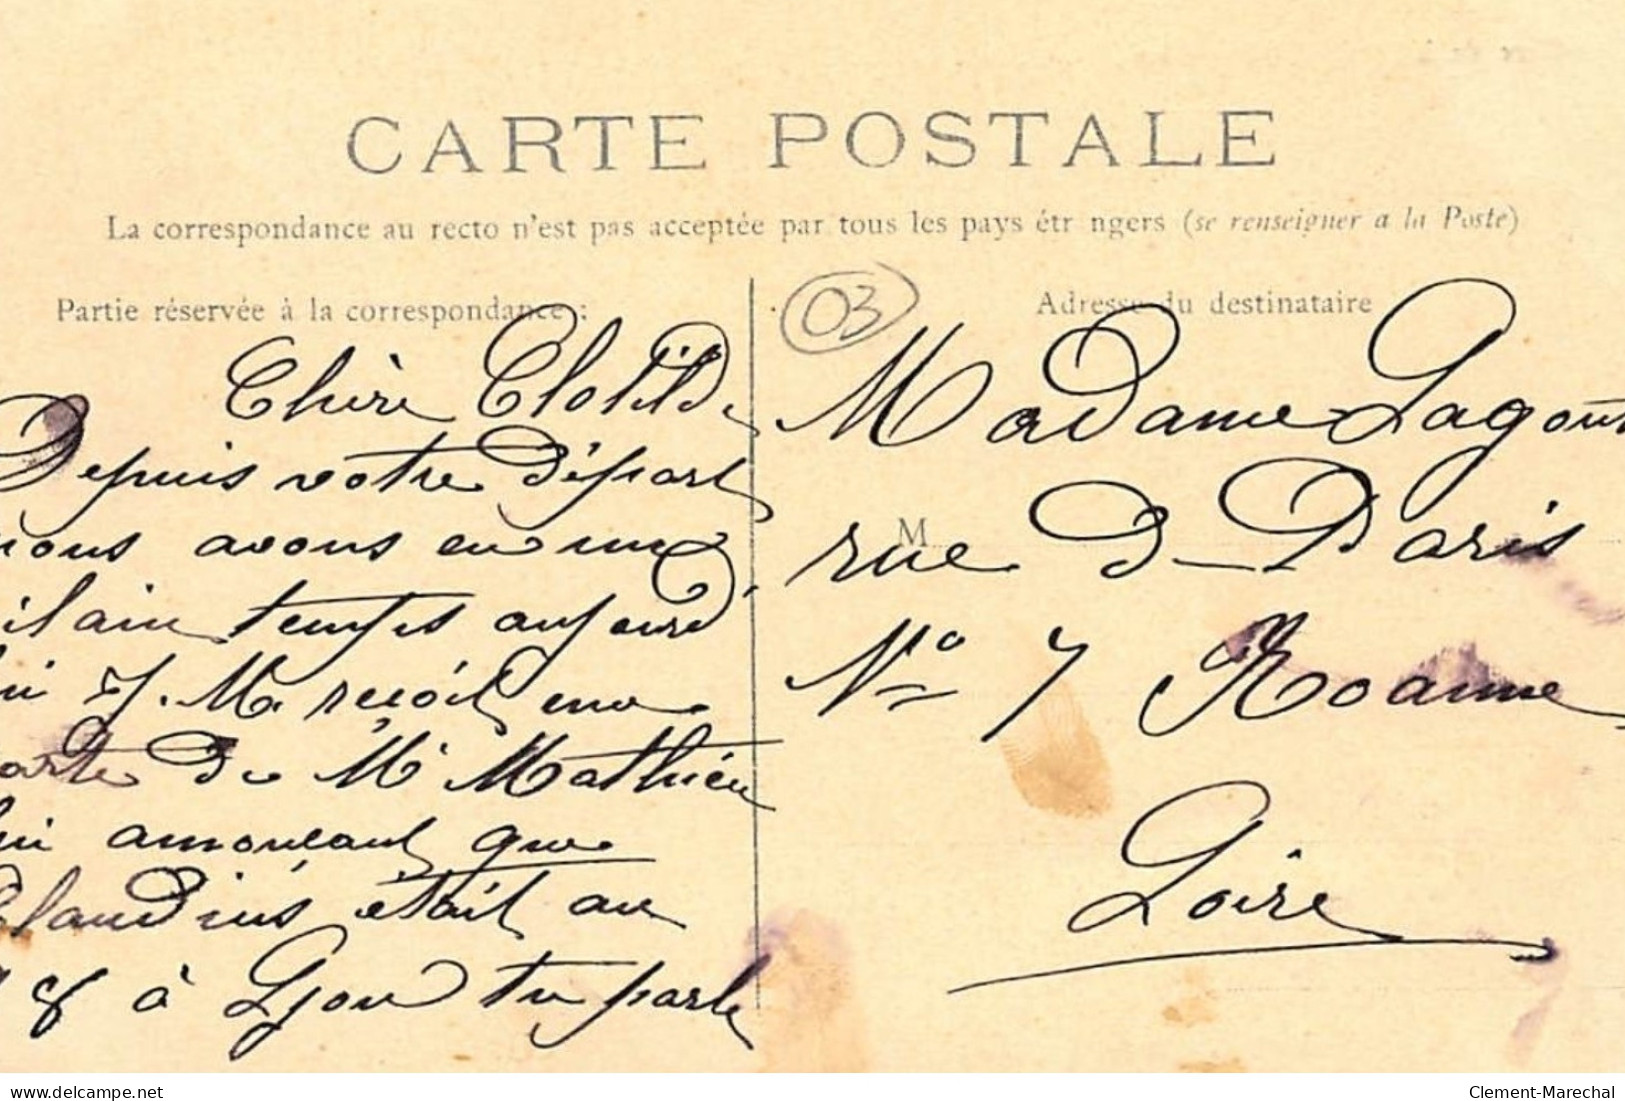 CARTE POSTALE
La correspondance au recto n'est pas acceptée par tous les pays étr ngers (se renseigner a la Poste)
Partie réservée à la correspondance :
Chère Clotilde
Depuis votre départ
nous avons eu un
ilain temps aujourd
ui J. M. reçoit une
arte de Mr Mathieu
lui anonçant que
Claudius était au
8 à Lyon tu parle
03
Adresse du destinataire
Madame Lagout
M
rue de Paris
No 7 Roanne
Loire
www.delcampe.net
Clement-Marechal